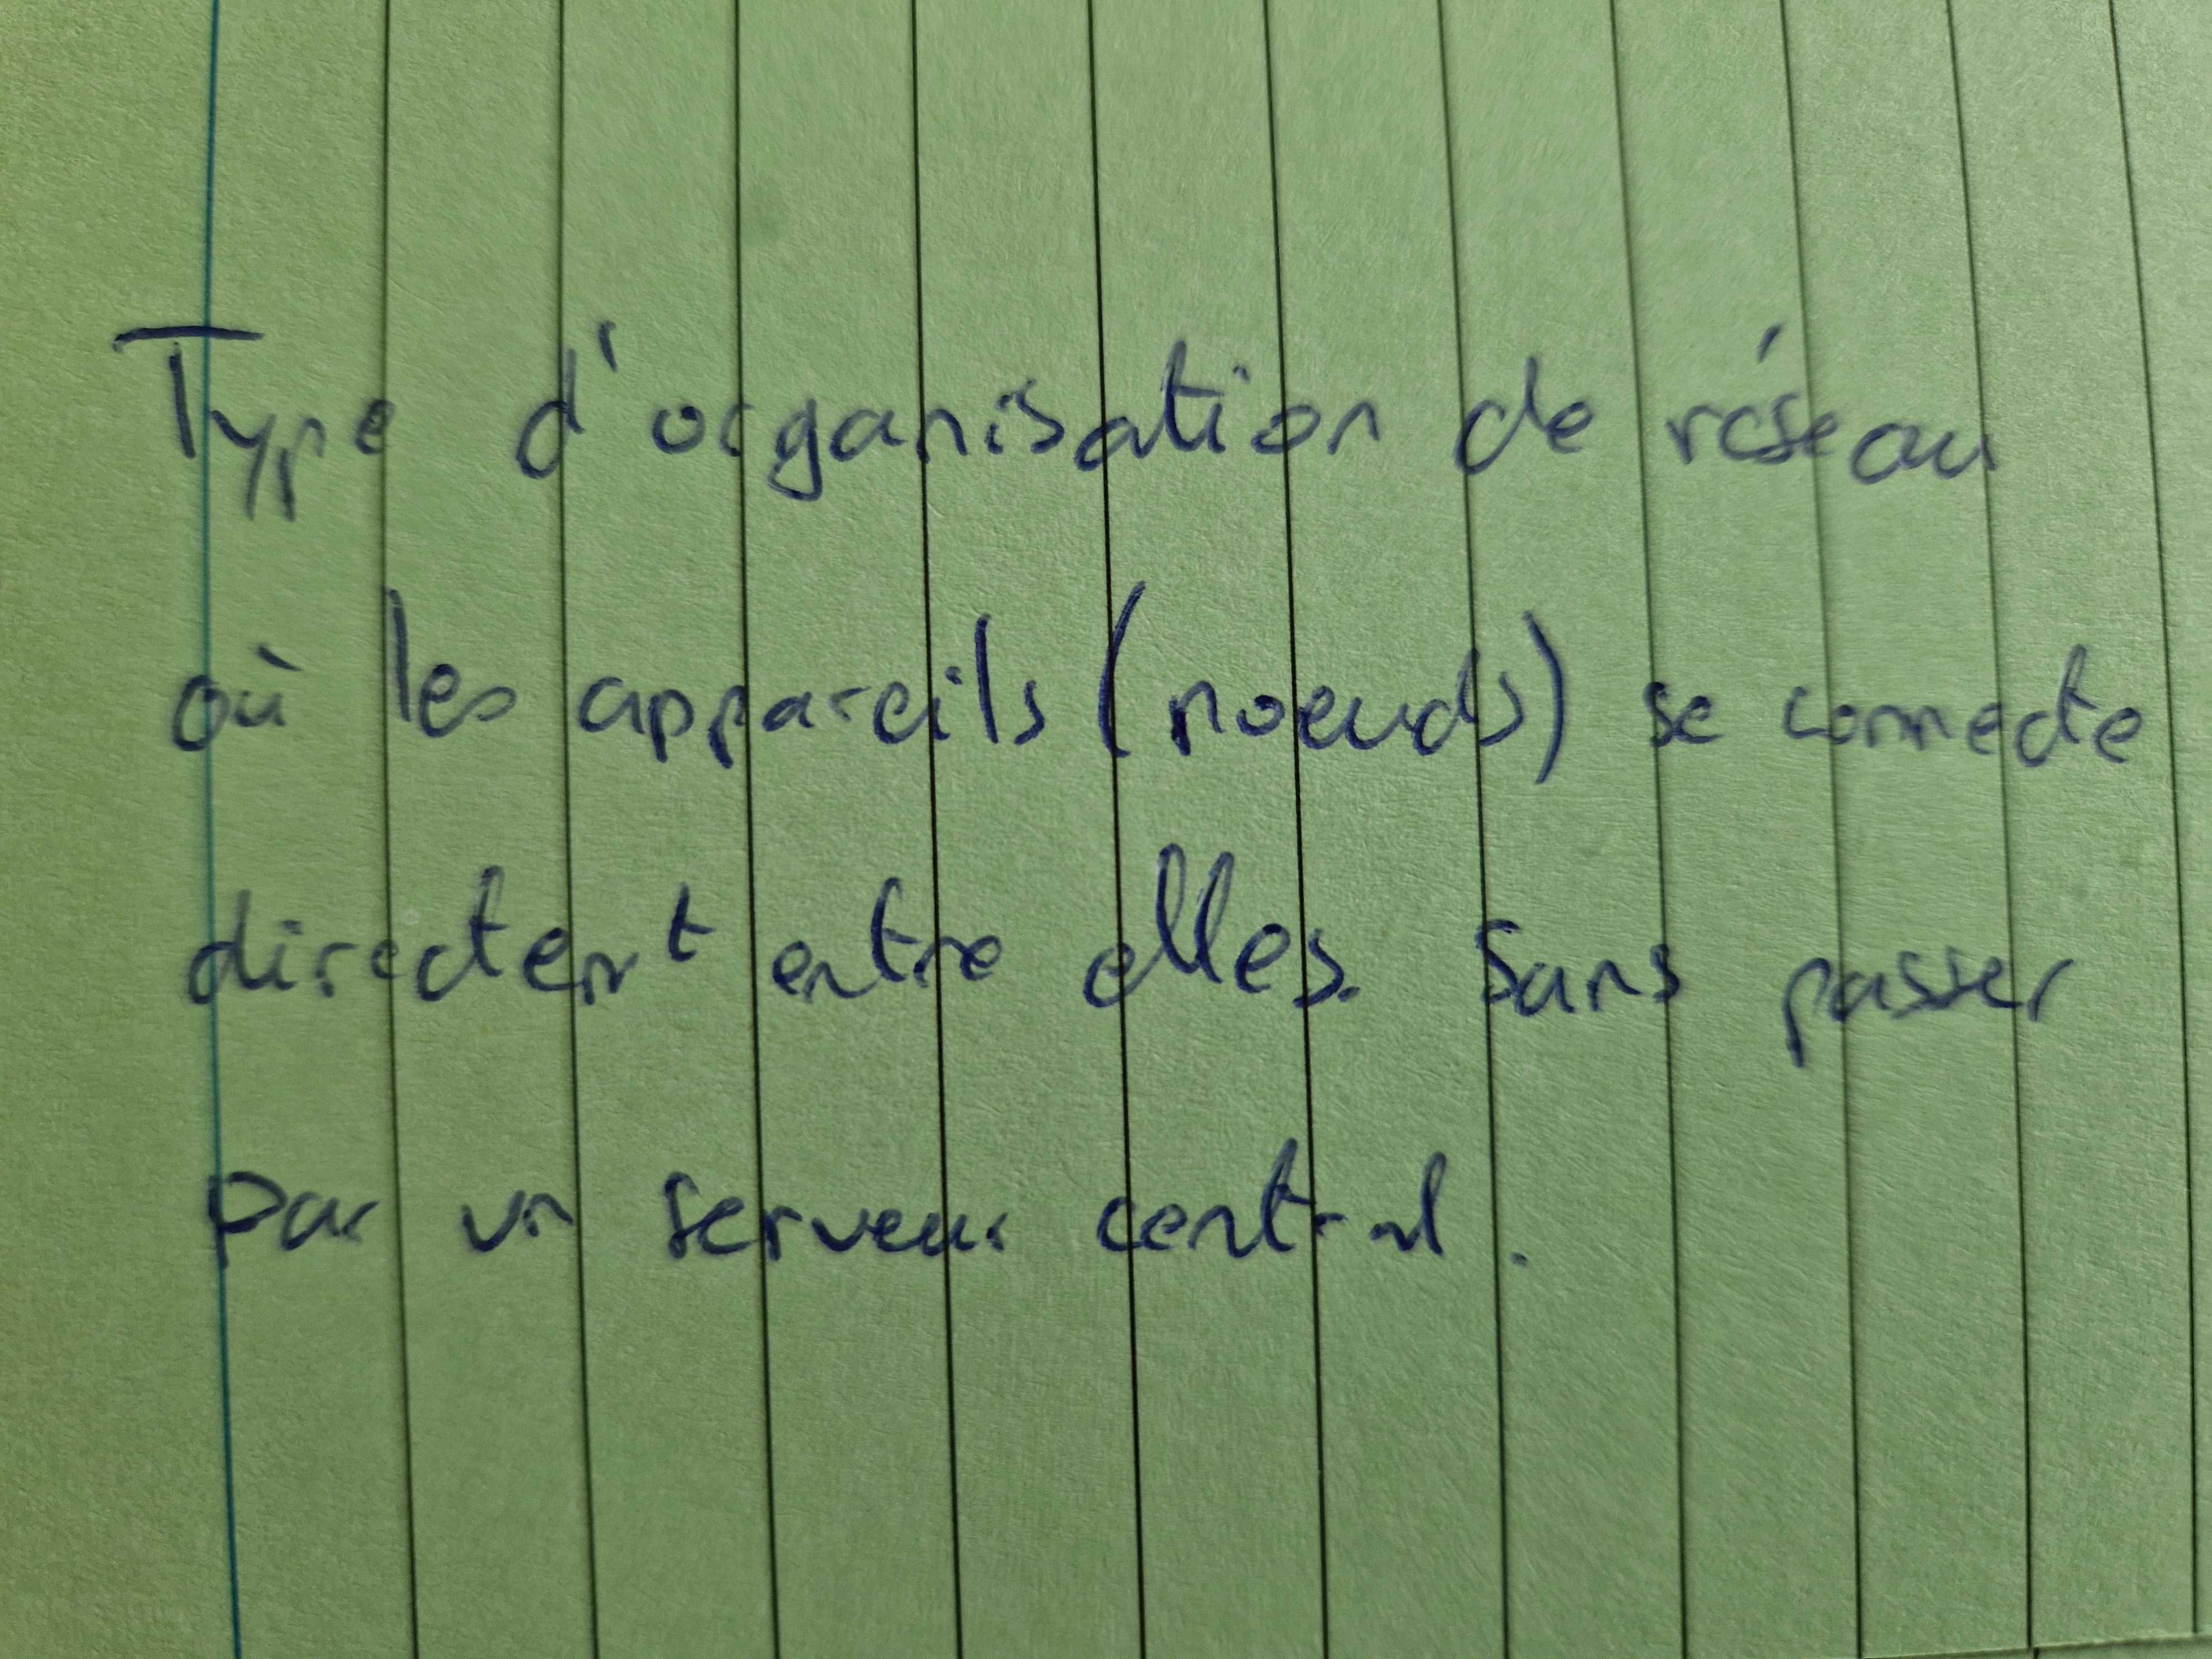 Type d'organisation de réseau
où les appareils (noeuds) se connecte
directent entre elles. Sans passer
par un serveur central.